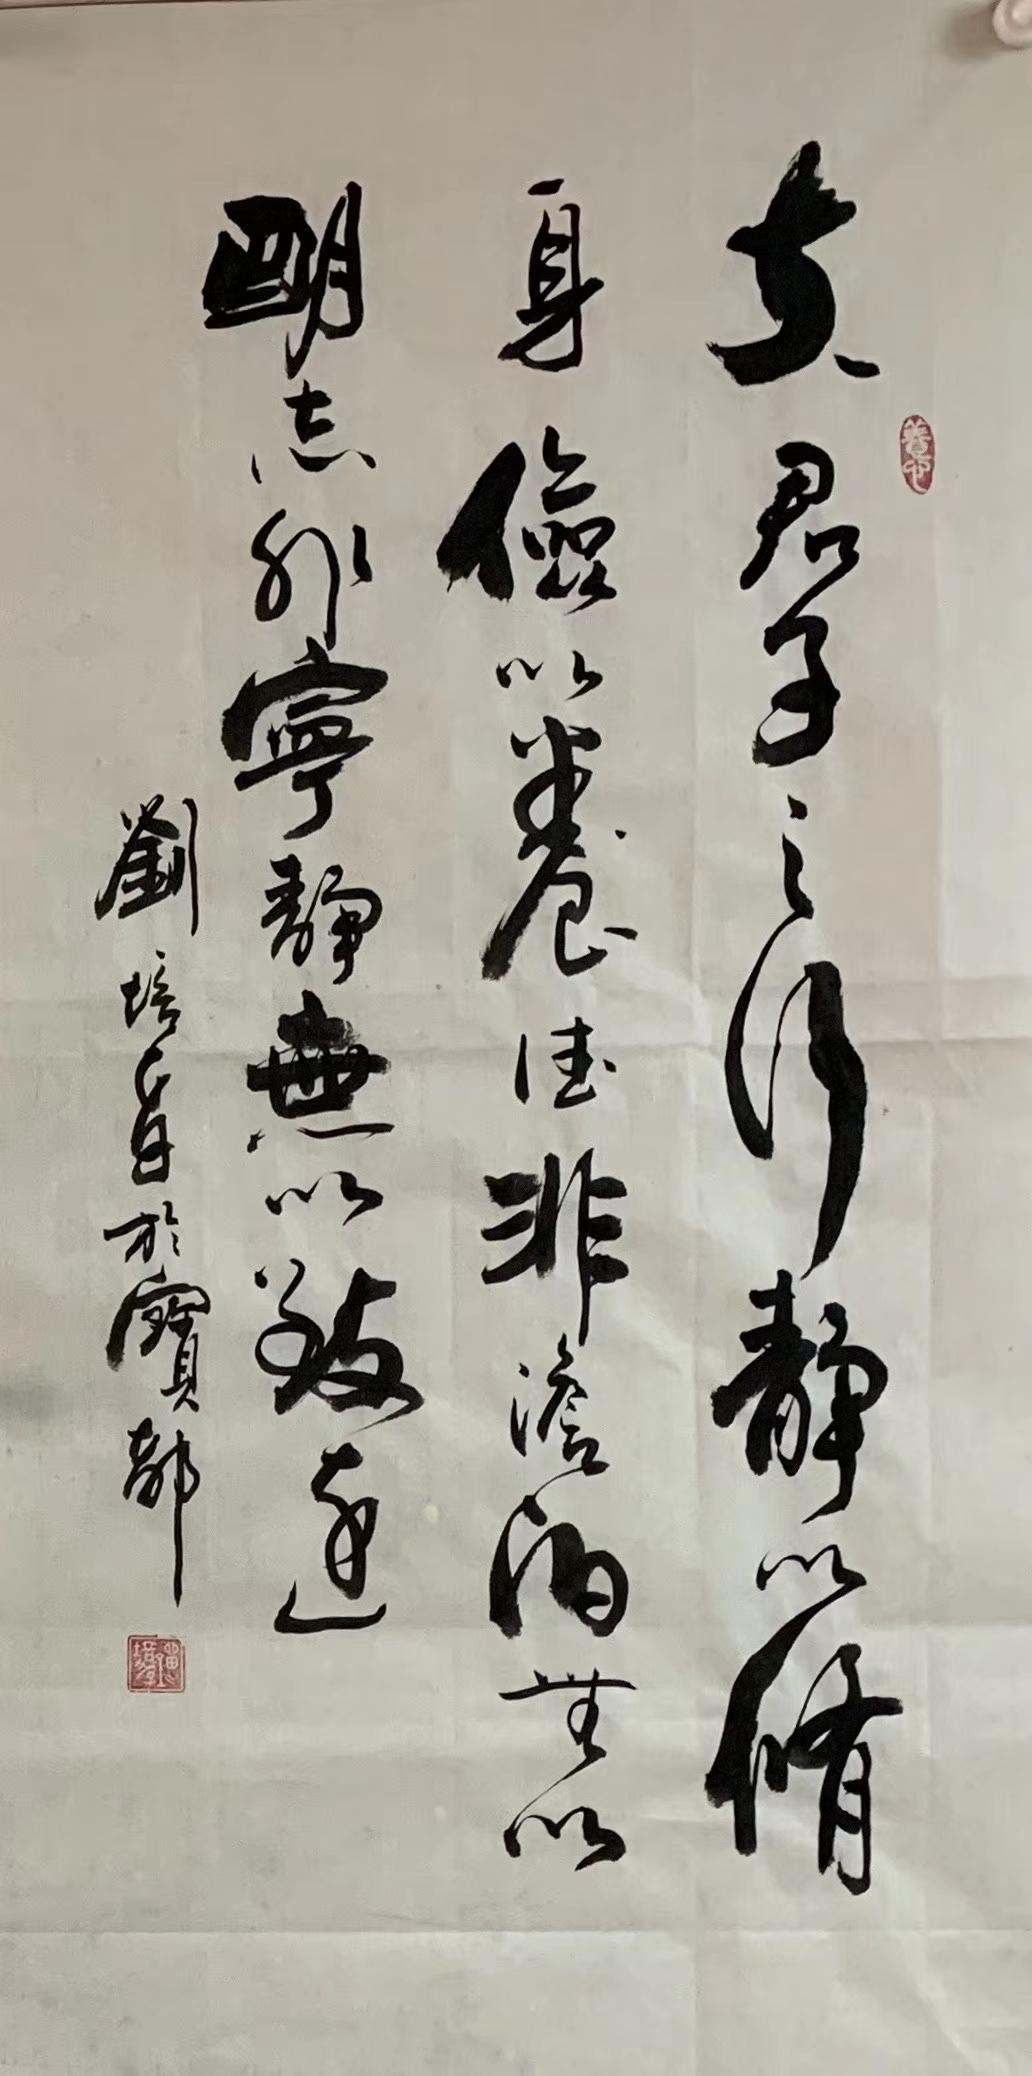 夫君子之行静以脩
身儉以養德非澹泊無以
明志非寧静無以致遠
劉培育於寶都
養心